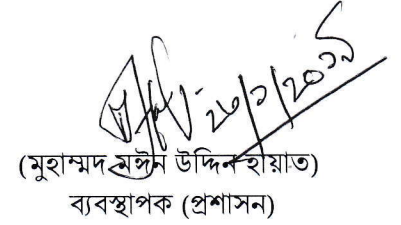 ২৩/১/২০১৯
(মুহাম্মদ মঈন উদ্দিন হায়াত)
ব্যবস্থাপক (প্রশাসন)